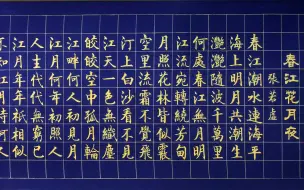 春江花月夜
張若虛
春江潮水連海平
海上明月共潮生
灩灩隨波千萬里
何處春江無月明
江流宛轉繞芳甸
月照花林皆似霰
空里流霜不覺飛
汀上白沙看不見
江天一色無纖塵
皎皎空中孤月輪
江畔何人初見月
江月何年初照人
人生代代無窮已
江月年年祗相似
不知江月